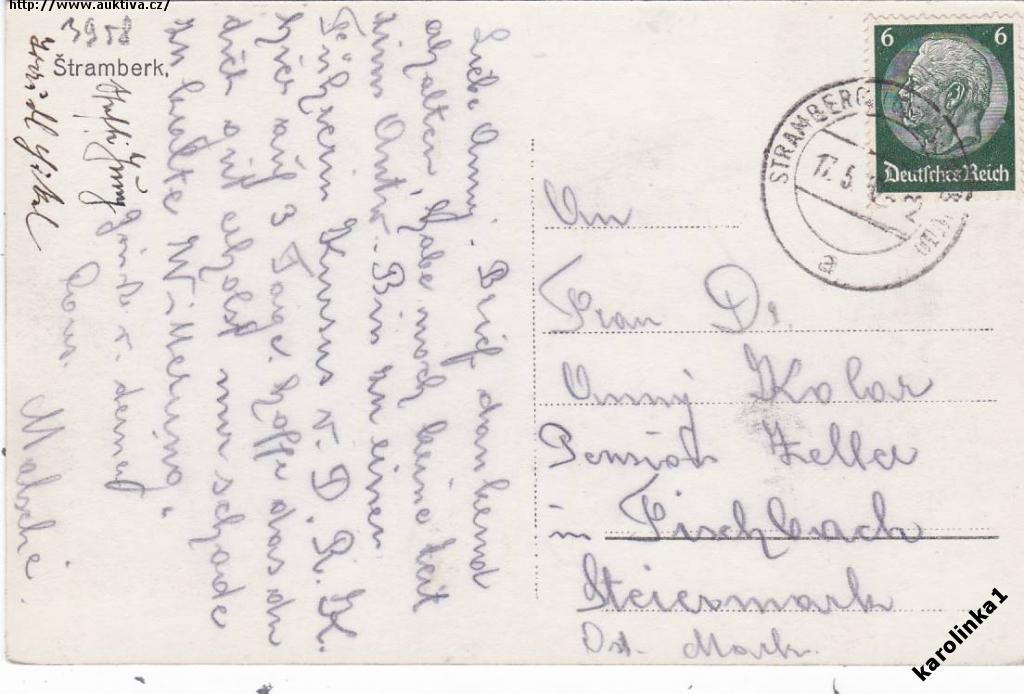 http://www.auktiva.cz/
3958
Štramberk,
Liebe Anny. Brief dankend
erhalten, habe noch keine Zeit
zum Antw. Bin zu einen
Führerin Kursus v. D. R. K.
hier auf 3 Tage. hoffe das du
dich gut erholst nur schade
zu heute
Grüße v. deiner
STRAMBERG
17.5.
a
6 6
Deutsches Reich
An
Frau Dr.
Anny Kolar
Pension Zeller
in Fischbach
Steiermark
Ost. Mark.
karolinka1